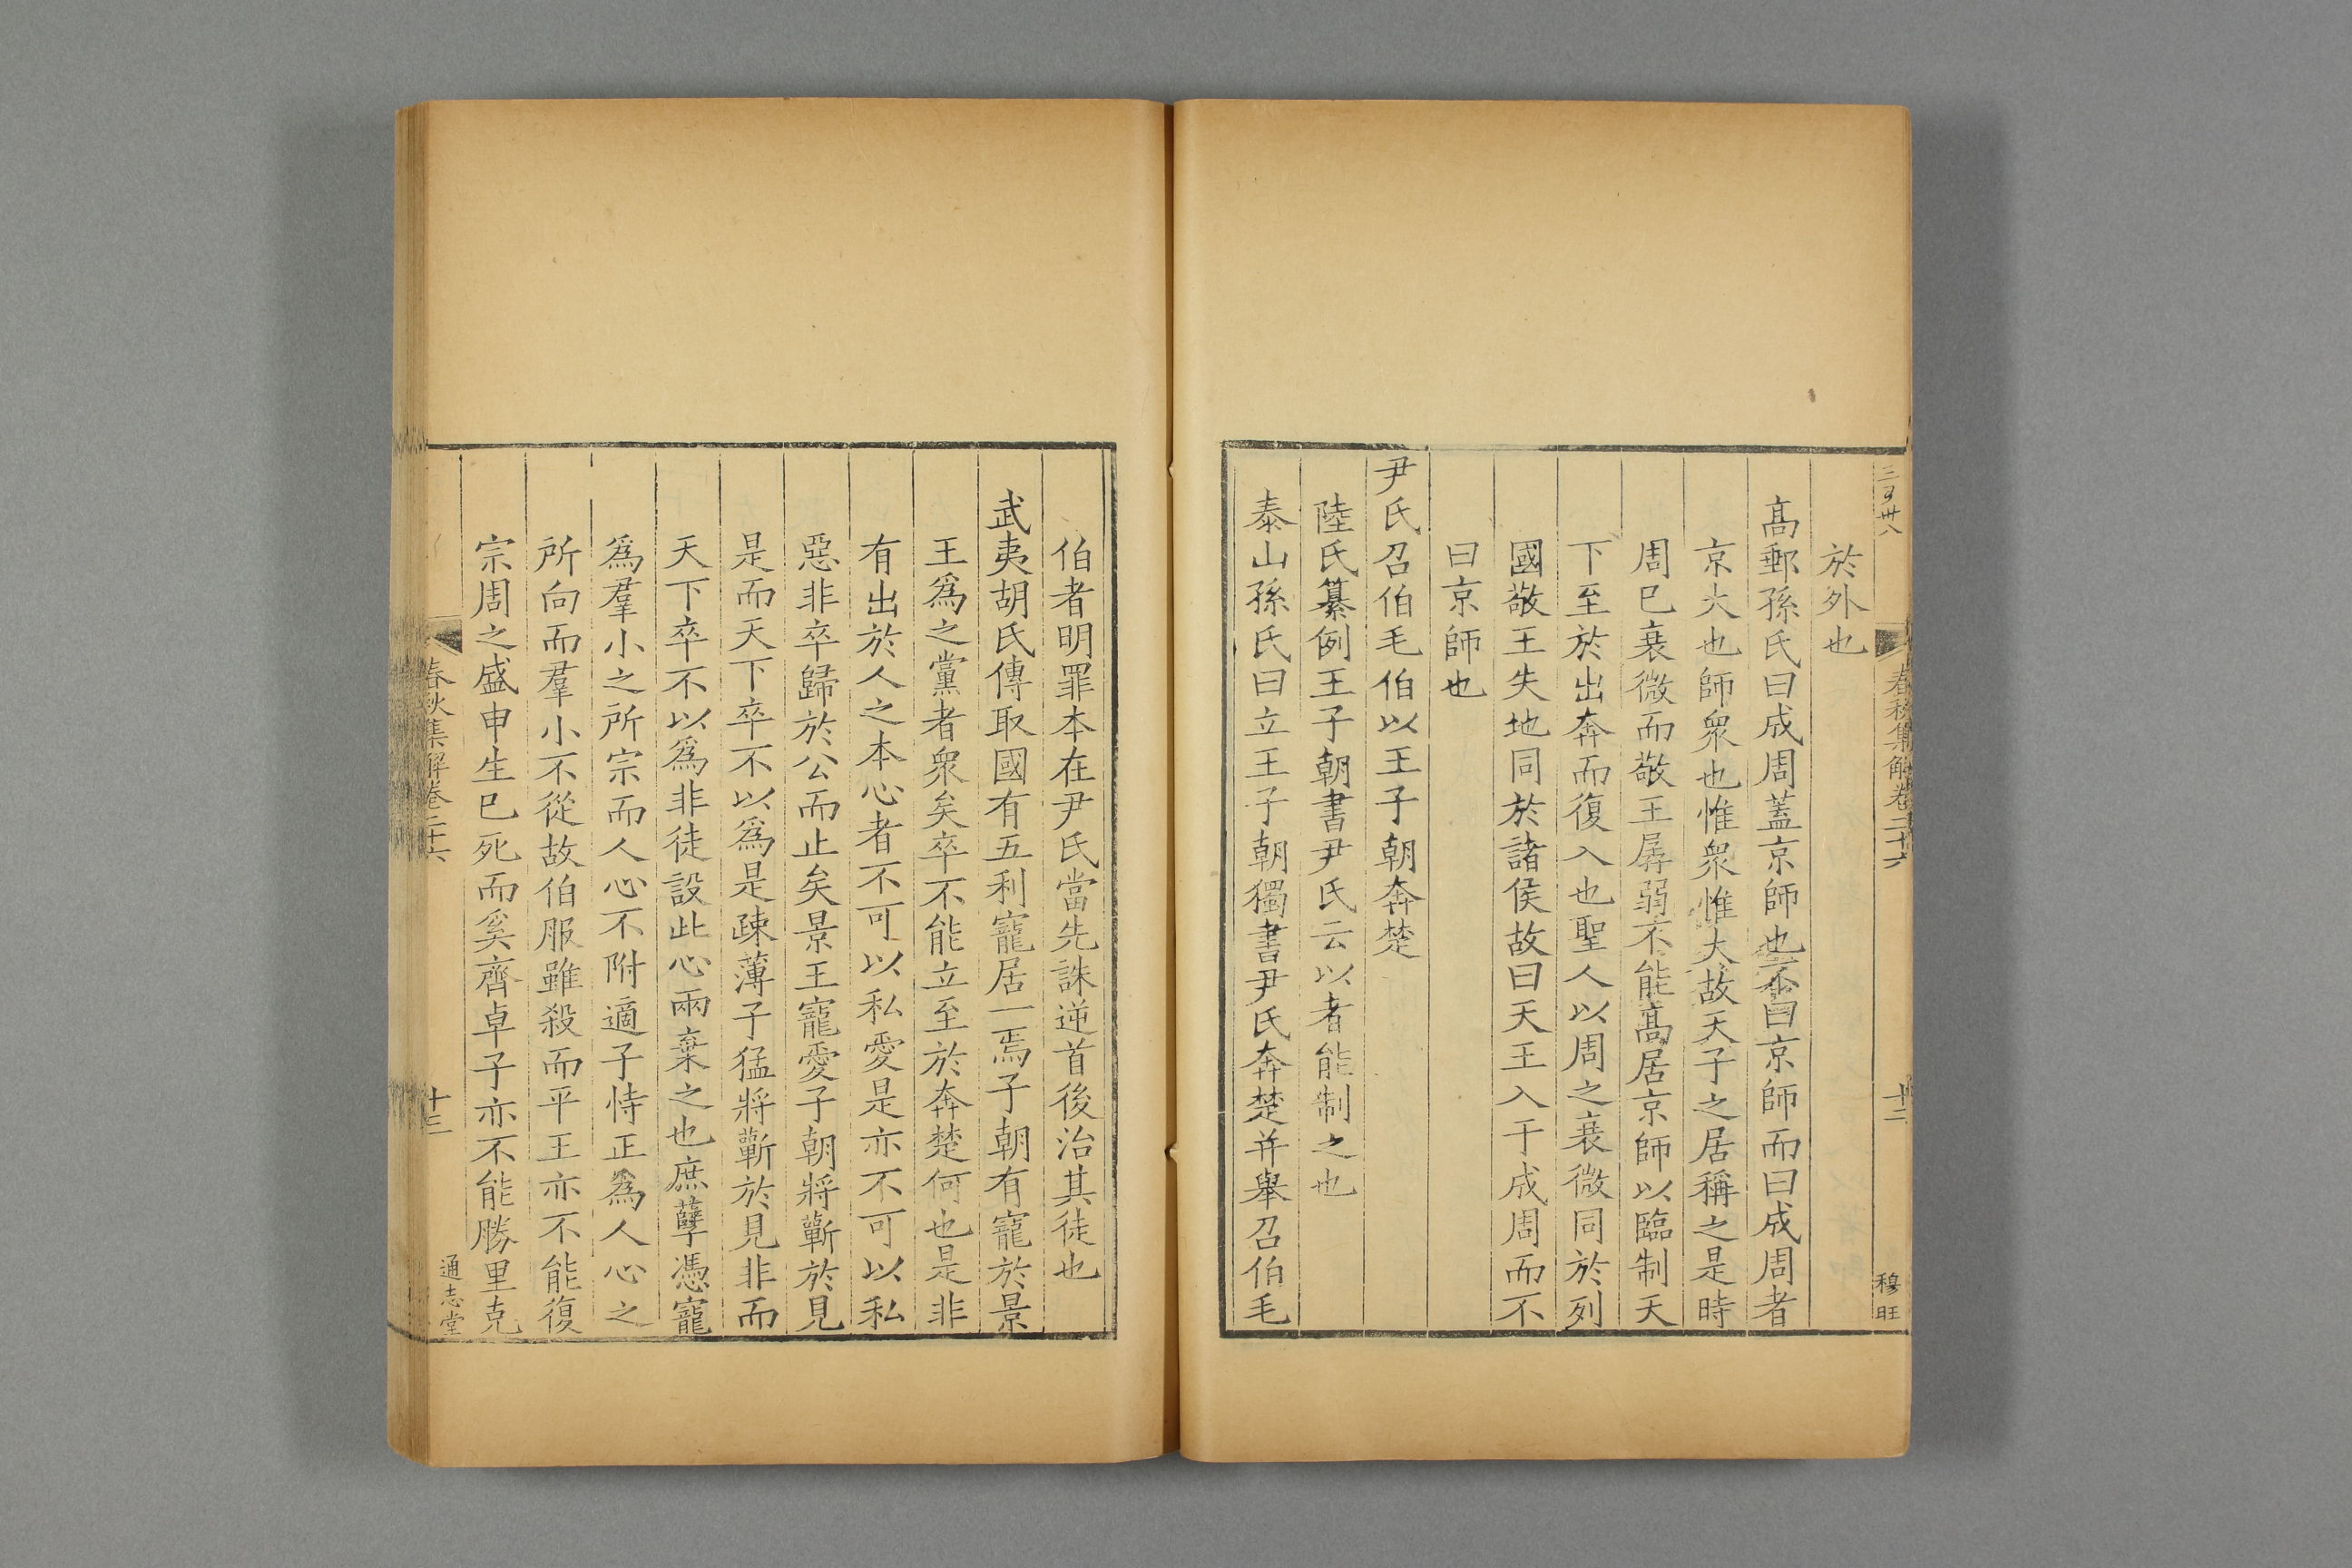 春秋集解卷二十六
十二
穆旺
於外也
高郵孫氏曰成周蓋京師也不曰京師而曰成周者
京大也師衆也惟衆惟大故天子之居稱之是時
周已衰微而敬王孱弱不能高居京師以臨制天
下至於出奔而復入也聖人以周之衰微同於列
國敬王失地同於諸侯故曰天王入于成周而不
曰京師也
尹氏召伯毛伯以王子朝奔楚
陸氏纂例王子朝書尹氏云以者能制之也
泰山孫氏曰立王子朝獨書尹氏奔楚并舉召伯毛
伯者明罪本在尹氏當先誅逆首後治其徒也
武夷胡氏傳取國有五利寵居一焉子朝有寵於景
王爲之黨者衆矣卒不能立至於奔楚何也是非
有出於人之本心者不可以私愛是亦不可以私
惡非卒歸於公而止矣景王寵愛子朝將蘄於見
是而天下卒不以爲是疎薄子猛將蘄於見非而
天下卒不以爲非徒設此心兩棄之也庶孽憑寵
爲羣小之所宗而人心不附適子恃正爲人心之
所向而羣小不從故伯服雖殺而平王亦不能復
宗周之盛申生已死而奚齊卓子亦不能勝里克
春秋集解卷二十六
十三
通志堂